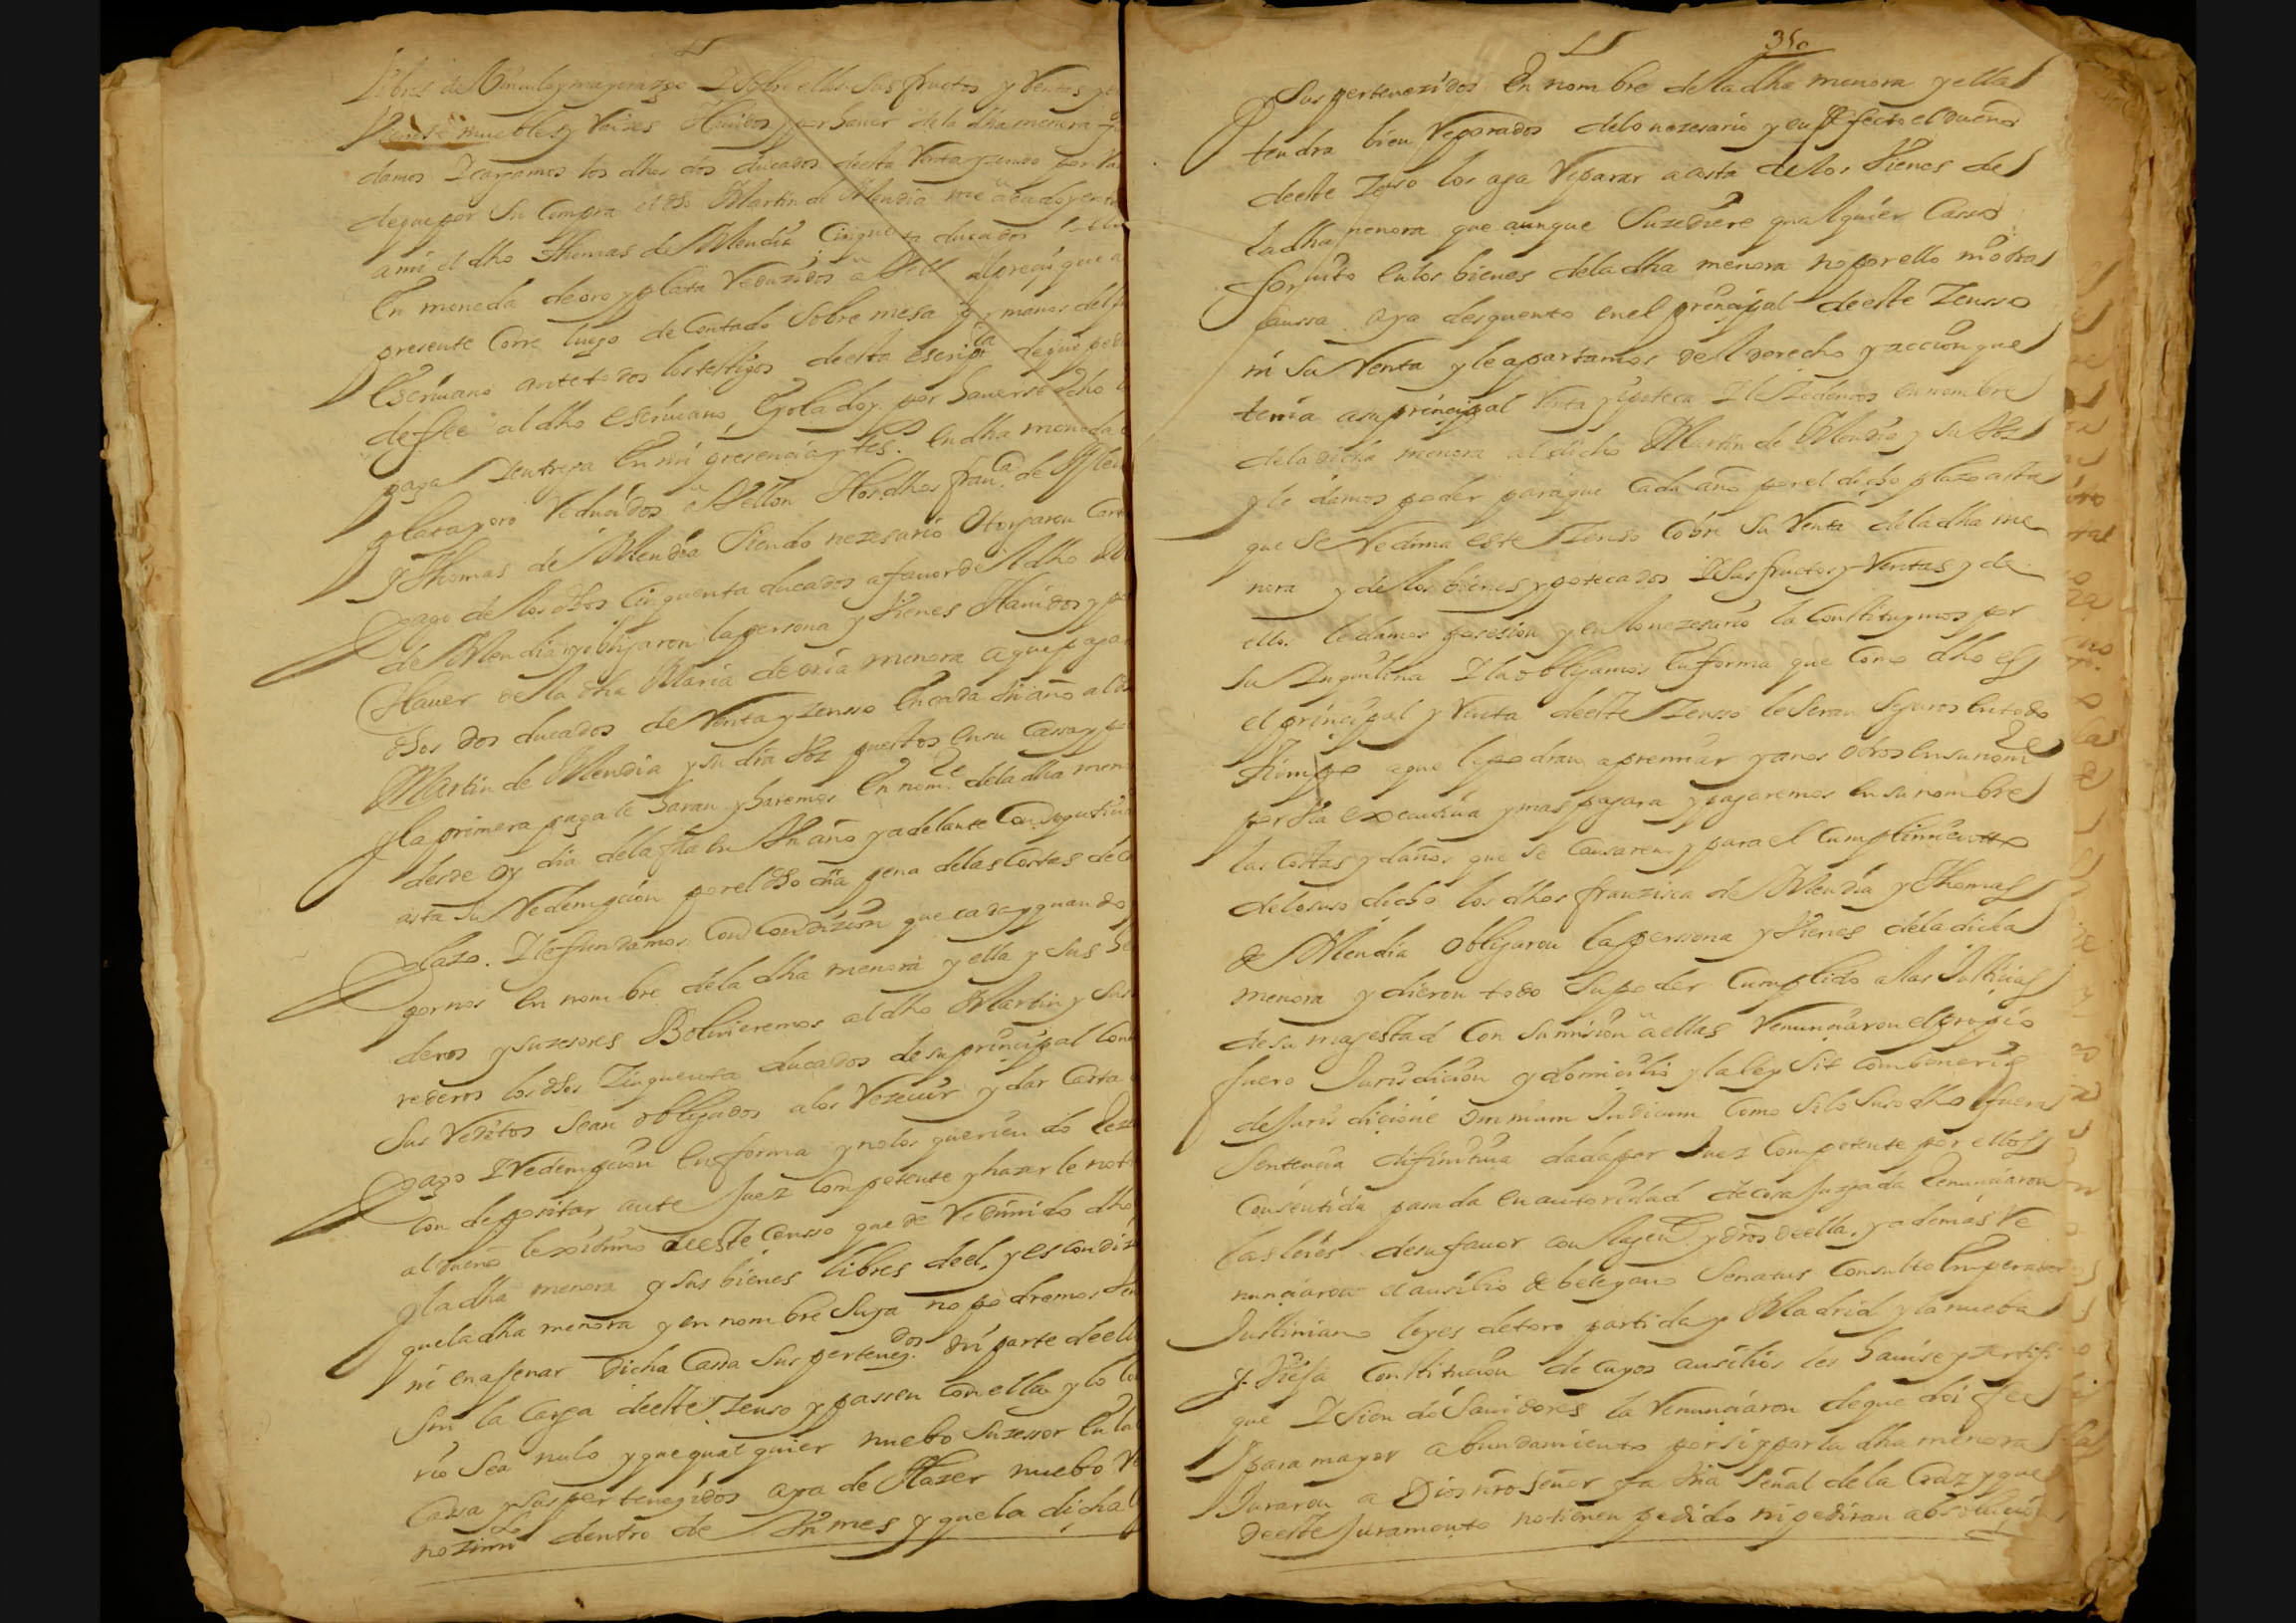 Libres de Vinculo y mayorazgo Y sobre ellos sus fructos y Rentas y
Vienes muebles y Raizes Hauidos y por hauer de la dha menora
damos Y cargamos los dhos dos ducados de esta Renta y zenso por
de que por su compra el dho Martin de Mendia me a dado y
a mi el dho Thomas de Mendia Cinquenta ducados
En moneda de oro y plata Reduzidos a Vellon al preçio que a
presente Corre luego de Contado sobre mesa y manos del
Escriuano ante todos los testigos de esta escript.ra de que
de fee al dho escriuano, Eyo la doy por hauerse dho
paga Y entrega En mi presencia y tes. en dha moneda
plata y oro Reducidos a Vellon Y los dhos fran.ca de Men
Y Thomas de Mendia Siendo nezesario Otorgaron Carta
pago de los dhos Cinquenta ducados a fauor del dho
de Mendia y obligaron la persona y Vienes Hauidos y po
Hauer de la dha Maria de oria menora a que pagara
dhos dos ducados de Renta y zensso En cada Vn año al
Martin de Mendia y su dra Voz puestos en su Cassa y po
Y la primera paga le haran y haremos En nom.e de la dha men
desde oy dia de la fha en Vn año y adelante Consequtiua
asta su Redempcion por el dho dia pena de las Costas de
plazo. Y le fundamos Con Condizion que cada y quando
por nos En nombre de la dha menora y ella y sus he
deros y suzesores Boluieremos al dho Martin y sus
rederos los dhos Zinquenta ducados de su principal Con
sus Reditos sean obligados a los Rezeuir y dar Carta
pago Y Redempcion En forma y no los queriendo Reze
Con depositar ante Juez Competente y hazerle noto
al dueño lexitimo de este Censso quede Redimido dho
y la dha menora y sus bienes libres de el, y es condiz
que la dha menora y en nombre suya no podremos
ni enagenar dicha Cassa sus perteneç.dos ni parte de ella
sin la Carga de este Zenso y passen Con ella y lo Con
rio sea nulo y que qual quier nuebo Suzessor En la
Cassa y sus perteneçidos aya de Hazer nuebo Re
nozim.to dentro de Vn mes y que la dicha
350
y sus pertenezidos En nombre de la dha menora y ella
tendra bien Reparados de lo nezesario y en defecto el dueño
de este Zenso los aga Reparar a costa de los Vienes de
la dha menora que aunque Suzediere qualquier Casso
fortuito en los bienes de la dha menora no por ello ni otra
caussa aya desquento en el principal de este Zensso
ni su Renta y le apartamos del derecho y accion que
tenia a su principal Renta y ypoteca Y le Zedemos en nombre
de la dicha menora al dicho Martin de Mendia y su Voz
y le damos poder para que cada año por el dicho plazo asta
que se Redima este Zenso Cobre su Renta de la dha me
nora y de los bienes ypotecados Y sus fructos y Rentas y de
ellos le damos posesion y en lo nezesario la Constituymos por
su Inquilina Y la obligamos En forma que Como dho es
el principal y Renta de este Zensso le seran seguros En todo
Tiempo a que le podran apremiar y a nos otros En su nom.e
por Via executiua y mas pagara y pagaremos En su nombre
las Costas y daños que se Causaren y para el Cumplimiento
de lo suso dicho los dhos franzisca de Mendia y Thomas
de Mendia Obligaron la persona y Vienes de la dicha
menora y dieron todo su poder Cumplido a las Justicias
de su magestad Con sumision a ellas Renunciaron el propio
fuero Jurisdicion y domicilio y la ley Sit Combenerit
de Jurisdicione omnium Judicum Como si lo suso dho fuera
Sentencia difinitiua dada por Juez Competente por ellos
Consentida pasada en autoridad de cosa Juzgada Renunciaron
las leies de su fauor con la gen.l y dros de ella, y ademas Re
nunciaron el ausilio de belegano Senatus Consulto Emperador
Justiniano leyes de toro partida y Madrid y la nueba
y Vieja Constitucion de cuyos ausilios les hauise y zertifi
que Y siendo Sauidores la Renunciaron de que doi fee
Y para mayor abundamiento por si y por la dha menora
Juraron a Dios nro Señor y a Vna Señal de la Cruz y que
de este Juramento no tienen pedido ni pediran absolucion